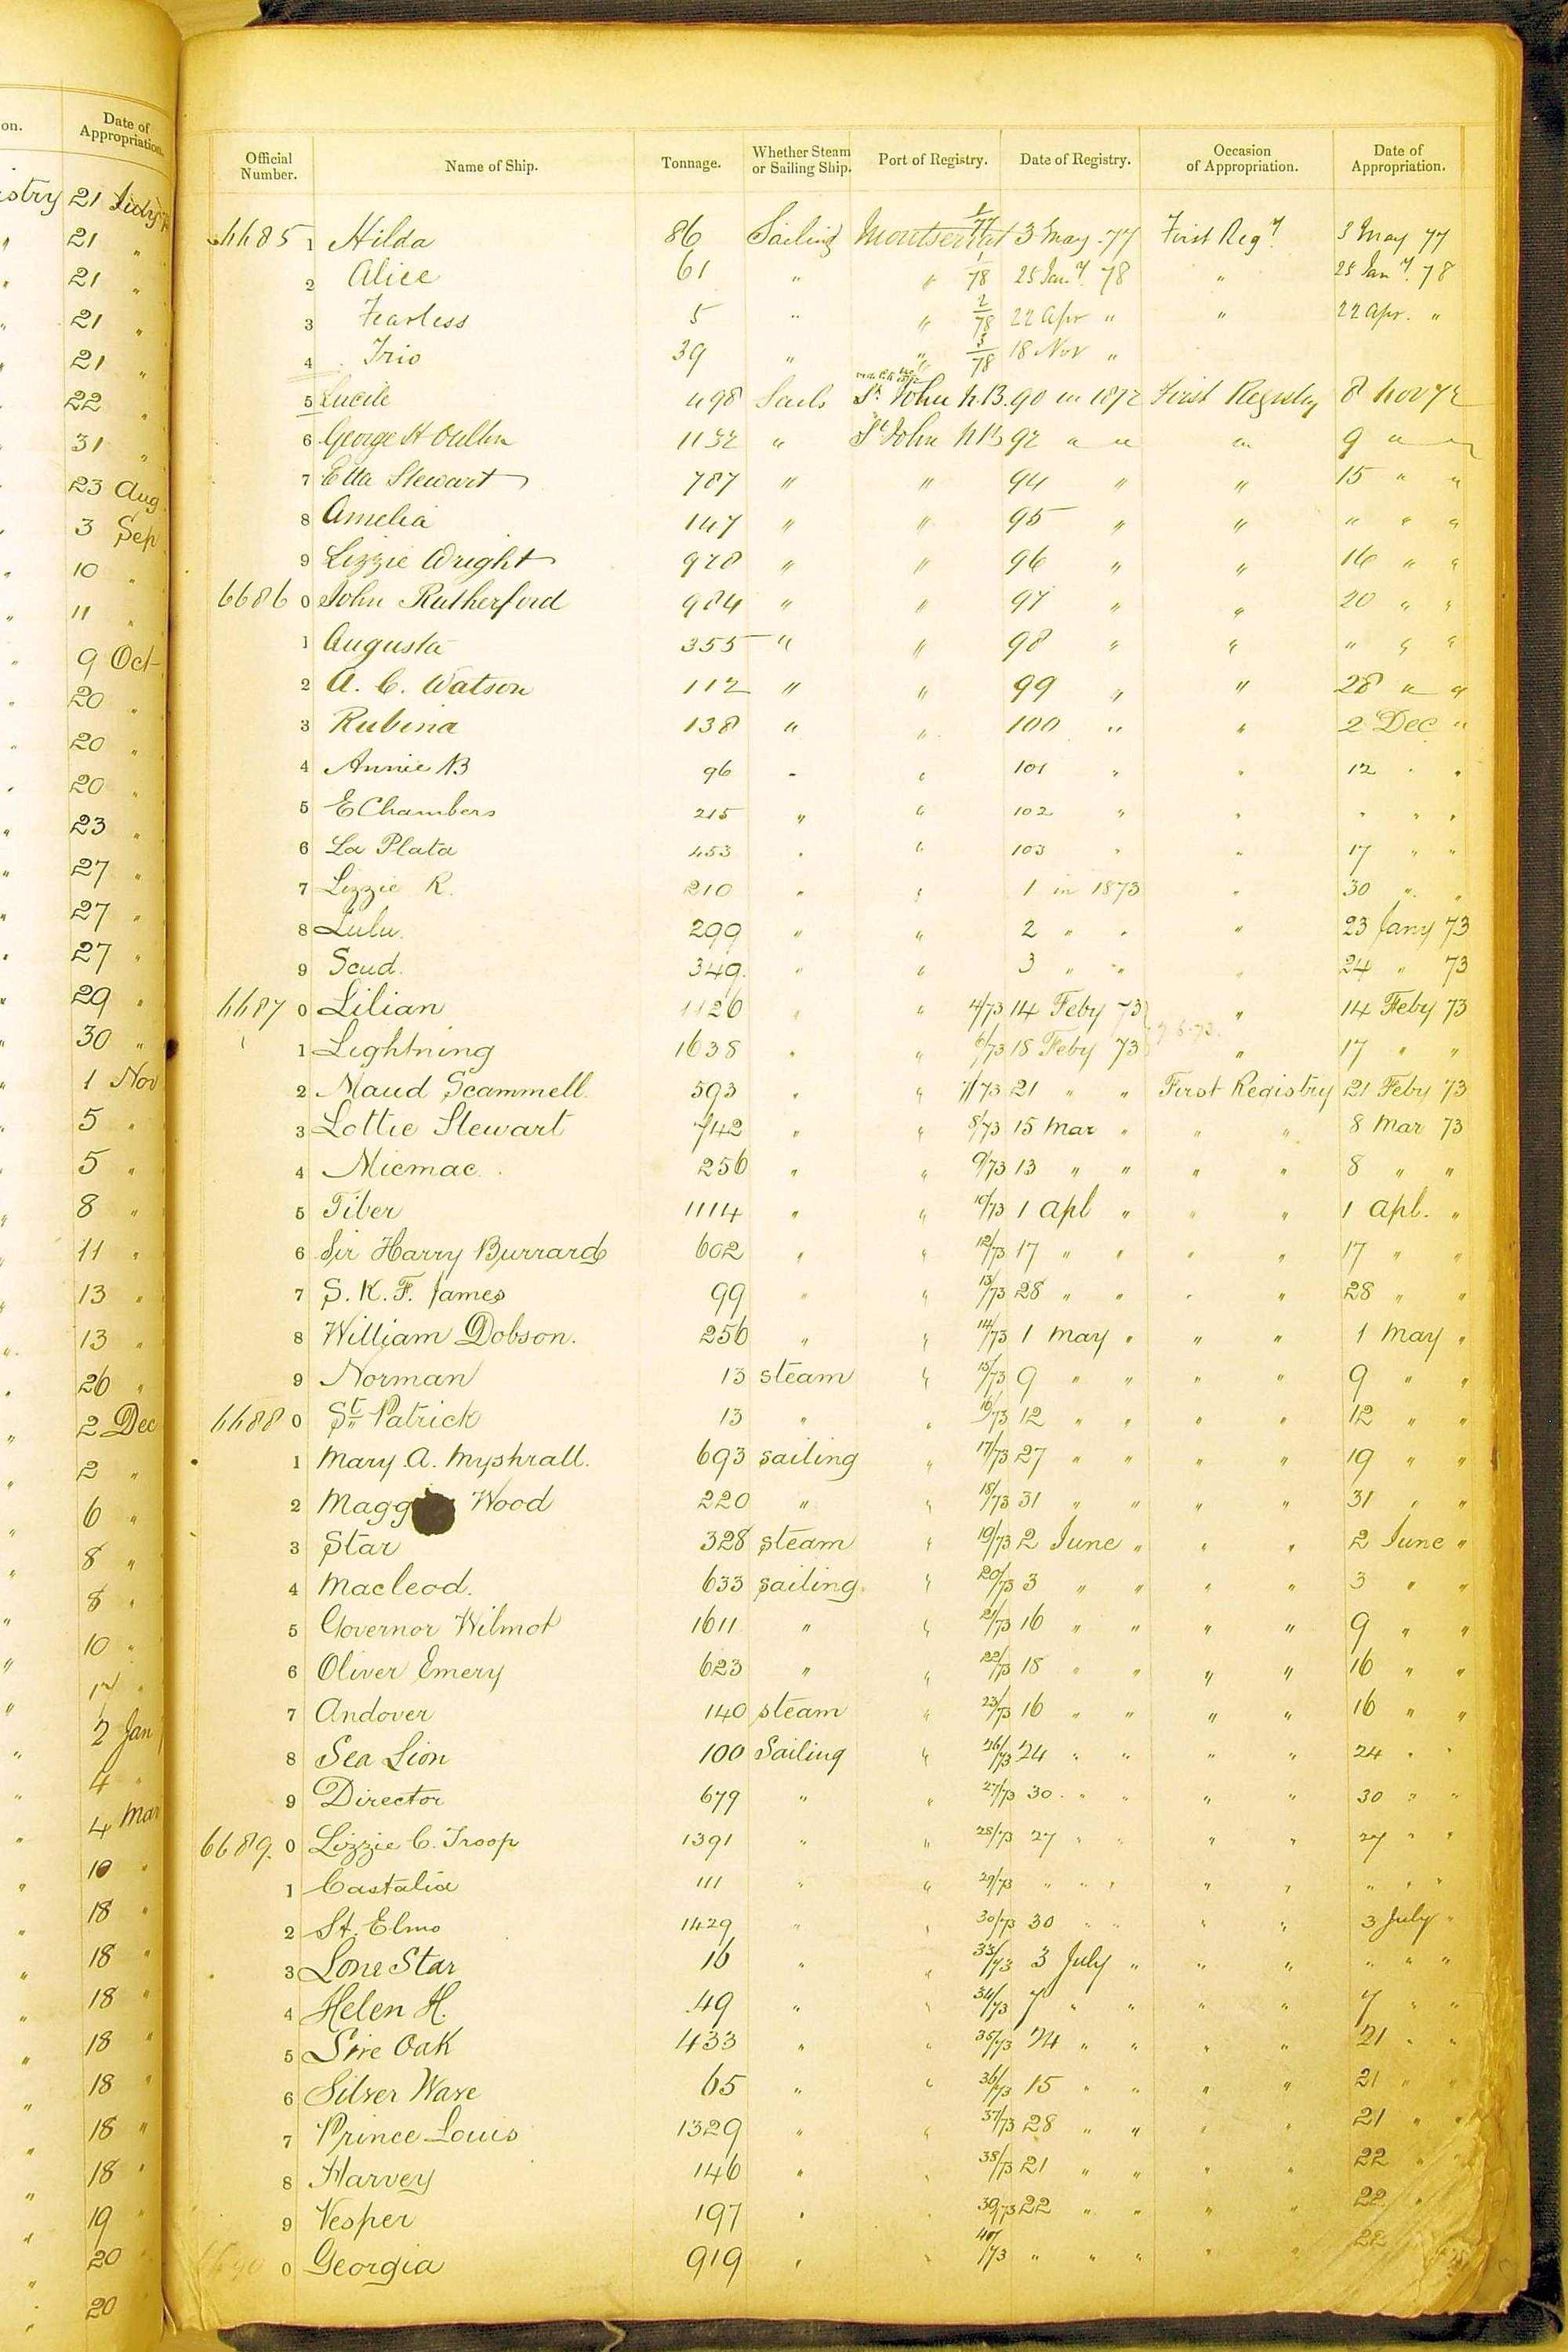 on.
Date of Appropriation.
istry 21 July
21 "
21 "
21 "
21 "
22 "
31 "
23 Aug
3 Sep
10 "
11 "
9 Oct
20 "
20 "
20 "
23 "
27 "
27 "
27 "
29 "
30 "
1 Nov
5 "
5 "
8 "
11 "
13 "
13 "
26 "
2 Dec
2 "
6 "
8 "
8 "
10 "
17 "
2 Jan
4 "
4 Mar
10 "
18 "
18 "
18 "
18 "
18 "
18 "
18 "
19 "
20 "
20
Official Number. Name of Ship. Tonnage. Whether Steam or Sailing Ship. Port of Registry. Date of Registry. Occasion of Appropriation. Date of Appropriation.
6685 1 Hilda 86 Sailing Montserrat 1/77 3 May 77 First Regy. 3 May 77
2 Alice 61 " " 1/78 25 Jany. 78 " 25 Jany. 78
3 Fearless 5 " " 2/78 22 Apr " " 22 Apr. "
4 Trio 39 " " 3/78 18 Nov "
5 Lucile 498 Sails St John N.B. 90 in 1872 First Registry 8 Nov 72
6 George H Oulton 1132 " St John N B 92 " " " 9 " "
7 Etta Stewart 787 " " 94 " " 15 " "
8 Amelia 147 " " 95 " " " " "
9 Lizzie Wright 978 " " 96 " " 16 " "
6686 0 John Rutherford 984 " " 97 " " 20 " "
1 Augusta 355 " " 98 " " " " "
2 A. C. Watson 112 " " 99 " " 28 " "
3 Rubina 138 " " 100 " " 2 Dec "
4 Annie B 96 " " 101 " " 12 " "
5 E Chambers 215 " " 102 " " " " "
6 La Plata 453 " " 103 " " 17 " "
7 Lizzie R. 210 " " 1 in 1873 " 30 " "
8 Lulu. 299 " " 2 " " " 23 Jany 73
9 Scud. 349. " " 3 " " " 24 " 73
6687 0 Lilian 1126 " " 4/73 14 Feby 73 " 14 Feby 73
1 Lightning 1638 " " 6/73 18 Feby 73 " 17 " "
2 Maud Scammell. 593 " " 7/73 21 " " First Registry 21 Feby 73
3 Lottie Stewart 742 " " 8/73 15 Mar " " " 8 Mar 73
4 Micmac. 256 " " 9/73 13 " " " " 8 " "
5 Tiber 1114 " " 10/73 1 Apl " " " 1 Apl. "
6 Sir Harry Burrard 602 " " 12/73 17 " " " " 17 " "
7 S. K. F. James 99 " " 13/73 28 " " " " 28 " "
8 William Dobson. 256 " " 14/73 1 May " " " 1 May "
9 Norman 13 steam " 15/73 9 " " " " 9 " "
6688 0 St Patrick 13 " " 16/73 12 " " " " 12 " "
1 Mary A. Myshrall. 693 sailing " 17/73 27 " " " " 19 " "
2 Wood 220 " " 18/73 31 " " " " 31 " "
3 Star 328 steam " 19/73 2 June " " " 2 June "
4 Macleod. 633 sailing " 20/73 3 " " " " 3 " "
5 Governor Wilmot 1611 " " 21/73 16 " " " " 9 " "
6 Oliver Emery 623 " " 22/73 18 " " " " 16 " "
7 Andover 140 steam " 23/73 16 " " " " 16 " "
8 Sea Lion 100 Sailing " 26/73 24 " " " " 24 " "
9 Director 679 " " 27/73 30 " " " " 30 " "
6689. 0 Lizzie C. Troop 1391 " " 28/73 27 " " " " 27 " "
1 Castalia 111 " " 29/73 " " " " " " " "
2 St. Elmo 1429 " " 30/73 30 " " " " 3 July "
3 Lone Star 16 " " 33/73 3 July " " " " " "
4 Helen H. 49 " " 34/73 7 " " " " 7 " "
5 Oak 433 " " 35/73 24 " " " " 21 " "
6 Silver Wave 65 " " 36/73 15 " " " " 21 " "
7 Prince Louis 1329 " " 37/73 28 " " " " 21 " "
8 Harvey 146 " " 38/73 21 " " " " 22 " "
9 Vesper 197 " " 39/73 22 " " " " 22 "
6690 0 Georgia 919 " " 40/73 " " " " " 22